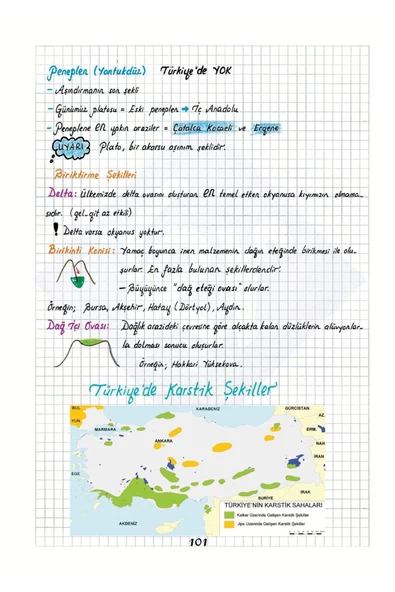 Peneplen (Yontukdüz) Türkiye'de YOK
- Aşındırmanın son şekli
- Günümüz platosu = Eski peneplen → İç Anadolu
- Peneplene en yakın araziler = Çatalca Kocaeli ve Ergene
UYARI Plato, bir akarsu aşınım şeklidir.
Biriktirme Şekilleri
Delta: Ülkemizde delta ovasını oluşturan en temel etken okyanusa kıyımızın olmama-
sıdır. (gel-git az etkili)
! Delta varsa okyanus yoktur.
Birikinti Konisi: Yamaç boyunca inen malzemenin dağın eteğinde birikmesi ile olu-
şurlar. En fazla bulunan şekillerdendir.
- Büyüyünce "dağ eteği ovası" olurlar.
Örneğin; Bursa, Akşehir, Hatay (Dörtyol), Aydın.
Dağ İçi Ovası: Dağlık arazideki çevresine göre alçakta kalan düzlüklerin alüvyonlar-
la dolması sonucu oluşurlar.
Örneğin; Hakkari Yüksekova.
Türkiye'de Karstik Şekiller
KARADENİZ
GÜRCİSTAN
BUL.
YUN.
MARMARA
ANKARA
AZ.
ERM.
NAH
İRAN
EGE
AKDENİZ
SURİYE
IRAK
TÜRKİYE'NİN KARSTİK SAHALARI
Kalker Üzerinde Gelişen Karstik Şekiller
Jips Üzerinde Gelişen Karstik Şekiller
101